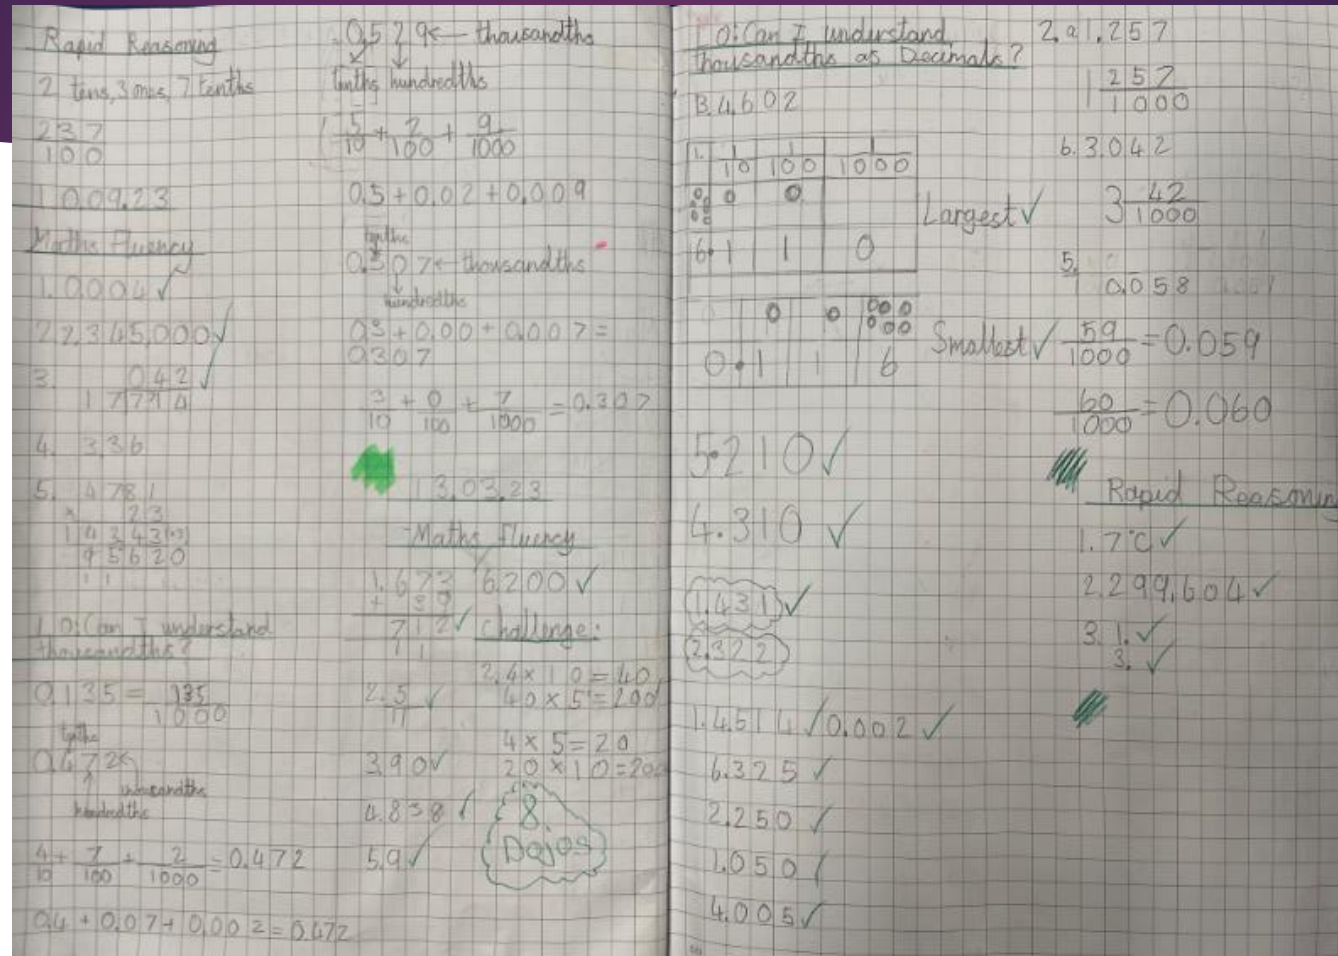 Rapid Reasoning
2 tens, 3 ones, 7 tenths
237
100
10.09.23
Maths Fluency
1. 0.004 ✓
2 2,345,000 ✓
3. 042 ✓
17 714
4. 336
5. 4781
× 23
14343
95620
1 1
LO: Can I understand
thousandths?
0.135 = 135
1000
tenths
0.472 ←
thousandths
hundredths
4/10 + 7/100 + 2/1000 = 0.472
0.4 + 0.07 + 0.002 = 0.472
0.529 ← thousandths
tenths hundredths
5/10 + 2/100 + 9/1000
0.5 + 0.02 + 0.009
tenths
0.307 ← thousandths
hundredths
0.3 + 0.00 + 0.007 =
0.307
3/10 + 0/100 + 7/1000 = 0.307
13.03.23
Maths Fluency
1. 673
+ 39
712 ✓
1
2. 5 ✓
11
3. 90 ✓
4. 838 ✓
5. 9 ✓
6. 200 ✓
Challenge:
2. 4 × 10 = 40
40 × 5 = 200
4 × 5 = 20
20 × 10 = 200
8
Dojos
LO: Can I understand
thousandths as Decimals?
B. 4.602
1. 1/10 1/100 1/1000
0 0
6. 1 1 0
Largest ✓
0 0 000
000
0.1 1 6
Smallest ✓
5.210 ✓
4.310 ✓
1.431 ✓
2.322
1. 4.514 ✓ 0.002 ✓
6.325 ✓
2.250 ✓
1.050 ✓
4.005 ✓
2. a 1.257
1 257/1000
b. 3.042
3 42/1000
5.
0.058
59/1000 = 0.059
60/1000 = 0.060
Rapid Reasoning
1. 7°C ✓
2. 299,604 ✓
3. 1. ✓
3. ✓